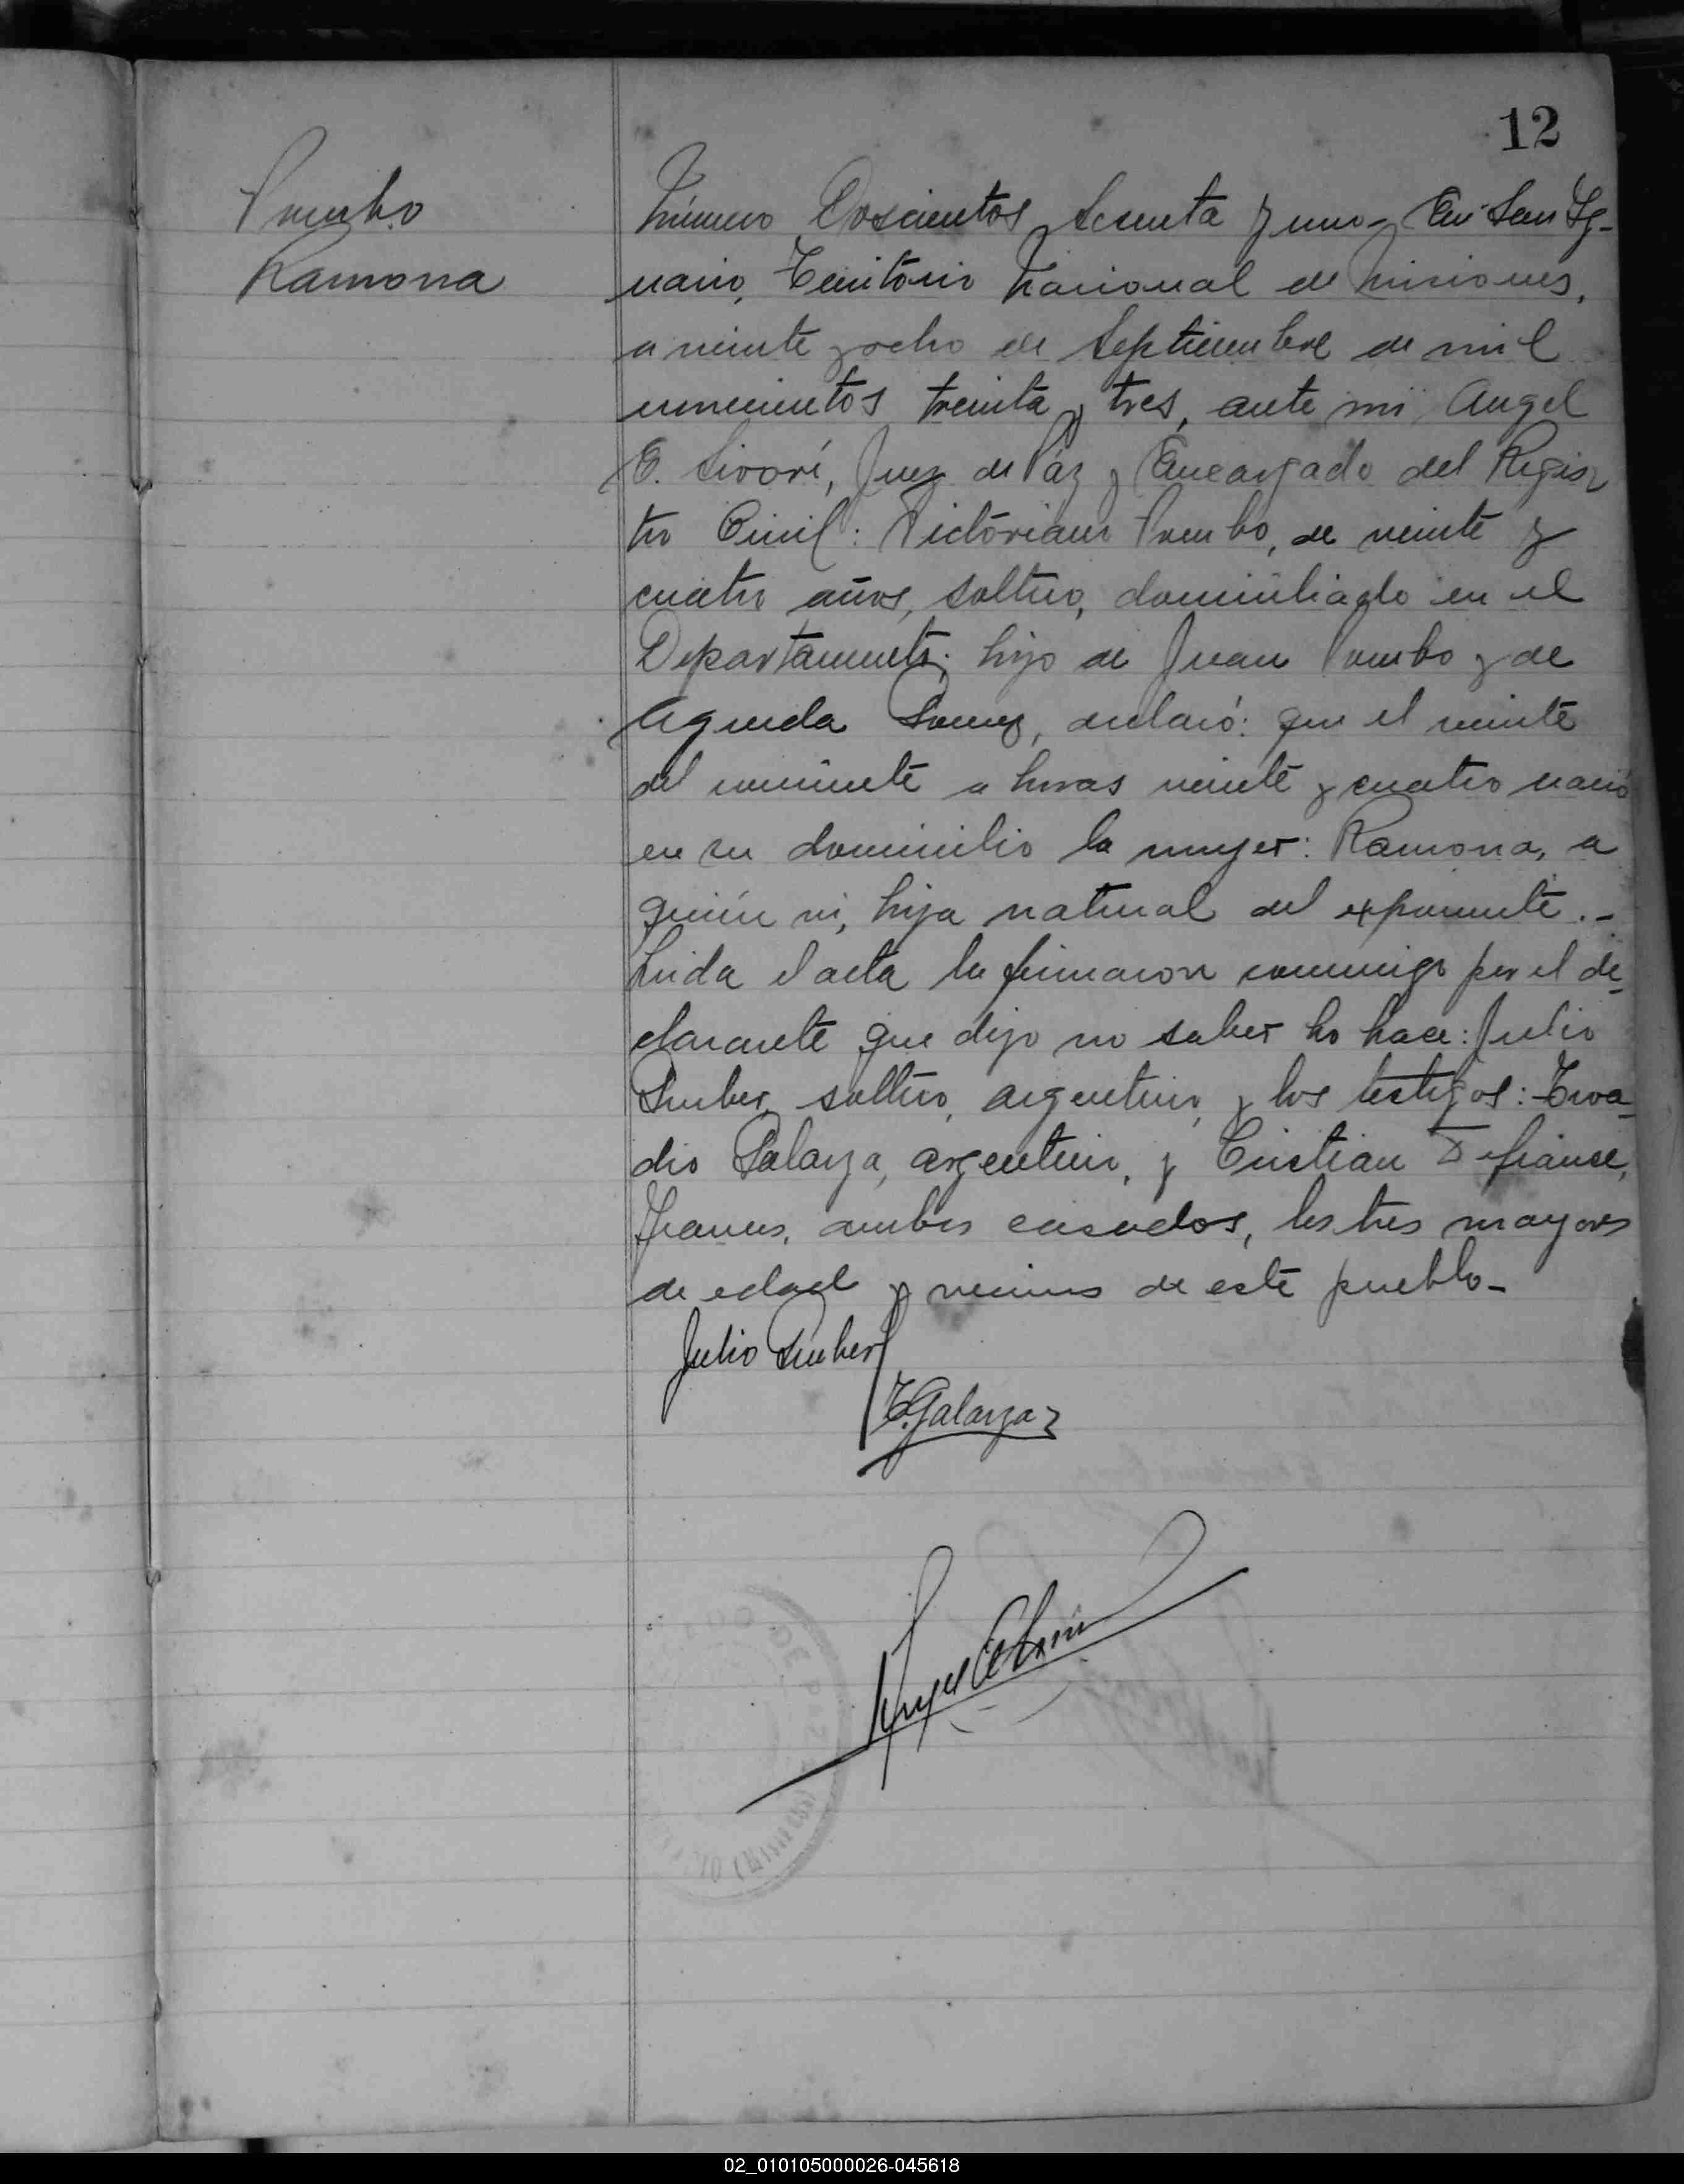 12
Pombo
Ramona
Número Doscientos sesenta y uno- En San Ig-
nacio, Territorio Nacional de Misiones,
a veinte y ocho de Septiembre de mil
novecientos treinta y tres, ante mi Angel
E. Sivori, Juez de Paz y Encargado del Regis-
tro Civil: Victoriano Pombo, de veinte y
cuatro años, soltero, domiciliado en el
Departamento; hijo de Juan Pombo y de
Agueda declaró: que el veinte
del corriente a horas veinte y cuatro nació
en su domicilio la mujer: Ramona, a
quién vi, hija natural del exponente.-
Leida el acta la firmaron conmigo por el de-
clarante que dijo no saber lo hace: Julio
soltero, argentino, y los testigos:
dio Galarza, argentino, y Cristian Defiance,
Frances, ambos casados, los tres mayores
de edad y vecinos de este pueblo-
Julio
E. Galarza
DE PAZ
02_010105000026-045618